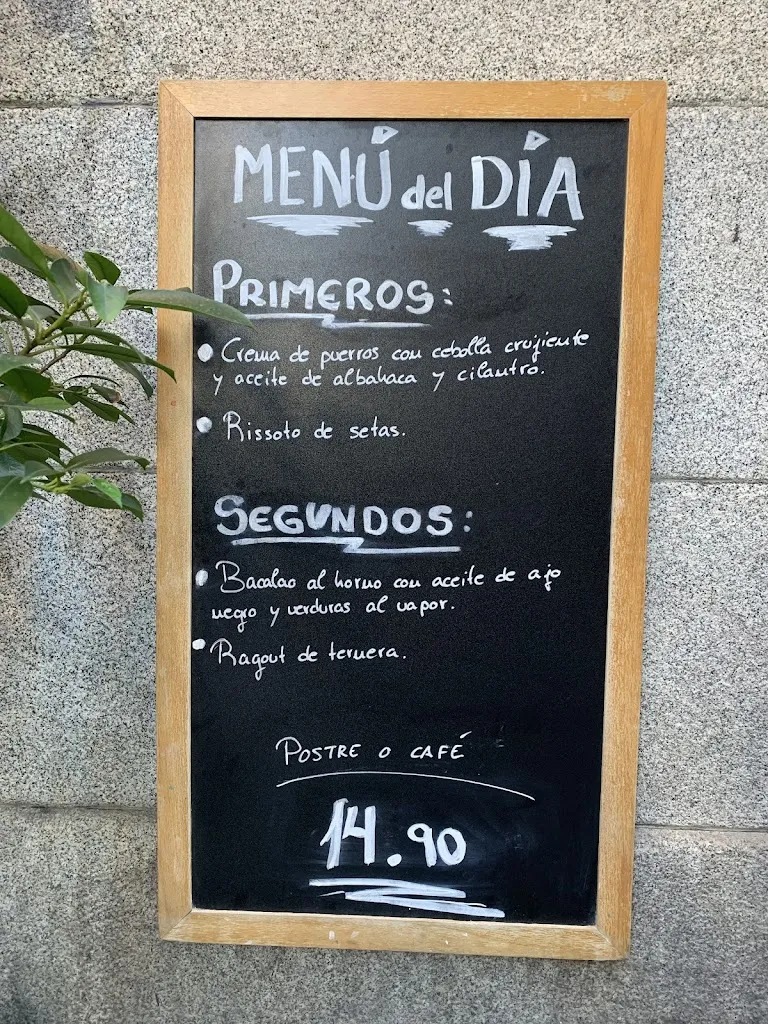 MENÚ del DÍA
PRIMEROS:
• Crema de puerros con cebolla crujiente
y aceite de albahaca y cilantro.
• Rissoto de setas.
SEGUNDOS:
• Bacalao al horno con aceite de ajo
negro y verduras al vapor.
• Ragout de ternera.
POSTRE O CAFÉ
14.90